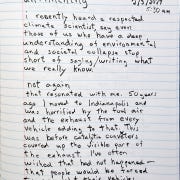 2/3/2019
7:30 am
i recently heard a respected
climate scientist say even
those of us who have a deep
understanding of environmental
and societal collapse stop
short of saying/writing what
we really know.
not again
that resonated with me. 50 years
ago I moved to Indianapolis and
was horrified by the fuel
and the exhaust from every
vehicle adding to that. This
was before catalytic converters
covered up the visible part of
the exhaust. I've often
wished that had not happened
that people would be forced
their vehicles